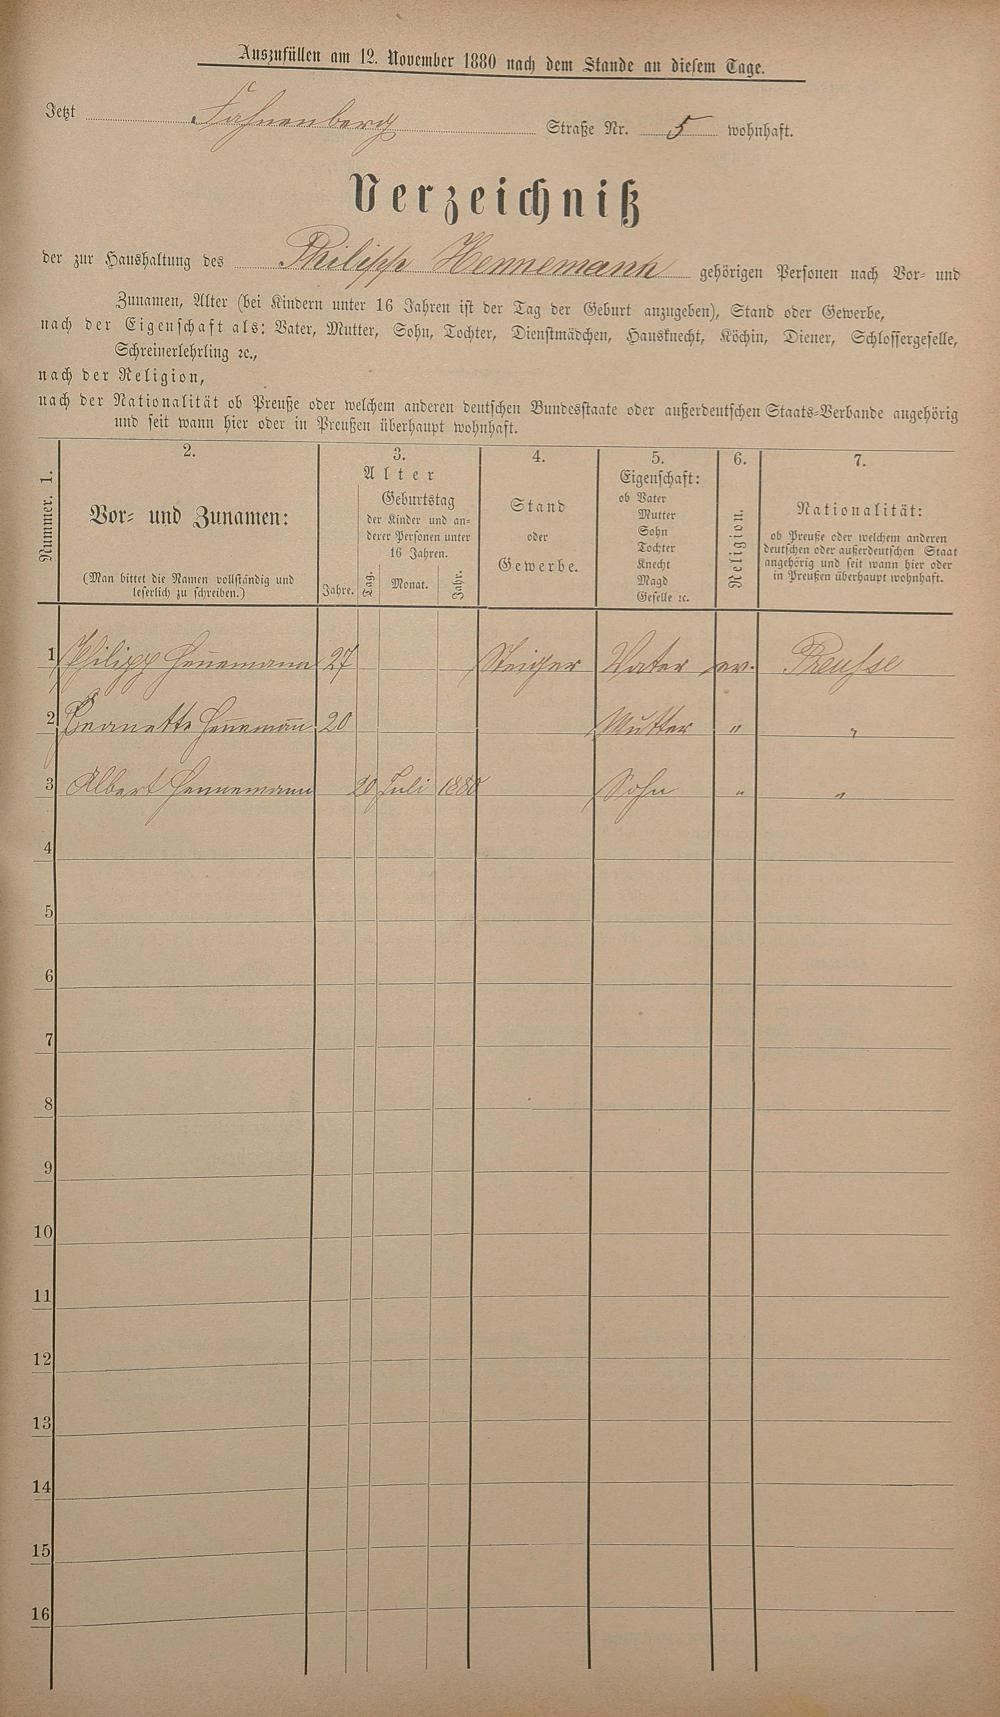 Auszufüllen am 12. November 1880 nach dem Stande an diesem Tage.
Jetzt Fahnenberg Straße Nr. 5 wohnhaft.
Verzeichniß
der zur Haushaltung des Philipp Hennemann gehörigen Personen nach Vor- und
Zunamen, Alter (bei Kindern unter 16 Jahren ist der Tag der Geburt anzugeben), Stand oder Gewerbe,
nach der Eigenschaft als: Vater, Mutter, Sohn, Tochter, Dienstmädchen, Hausknecht, Köchin, Diener, Schlossergeselle,
Schreinerlehrling ꝛc.,
nach der Religion,
nach der Nationalität ob Preuße oder welchem anderen deutschen Bundesstaate oder außerdeutschen Staats-Verbande angehörig
und seit wann hier oder in Preußen überhaupt wohnhaft.
Nummer. 1.
2.
Vor- und Zunamen:
(Man bittet die Namen vollständig und
leserlich zu schreiben.)
3.
Alter
Jahre.
Geburtstag
der Kinder und an-
derer Personen unter
16 Jahren.
Tag. Monat. Jahr.
4.
Stand
oder
Gewerbe.
5.
Eigenschaft:
ob Vater
Mutter
Sohn
Tochter
Knecht
Magd
Geselle ꝛc.
6.
Religion.
7.
Nationalität:
ob Preuße oder welchem anderen
deutschen oder außerdeutschen Staat
angehörig und seit wann hier oder
in Preußen überhaupt wohnhaft.
1 Philipp Hennemann 27 Steiger Vater ev. Preusse
2 Jeanette Hennemann 20 Mutter " "
3 Albert Hennemann 20 Juli 1880 Sohn " "
4
5
6
7
8
9
10
11
12
13
14
15
16